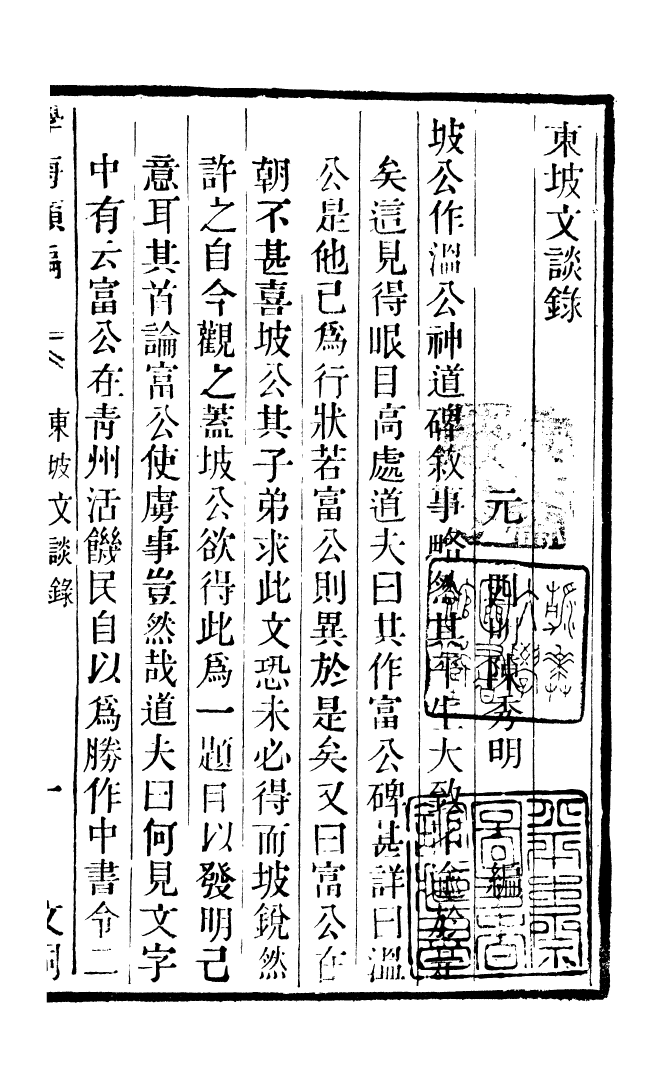 東坡文談錄
元 四明陳秀明 編
坡公作溫公神道碑敘事略然其平生大致不踰於是
矣這見得眼目高處道夫曰其作富公碑甚詳曰溫
公是他已爲行狀若富公則異於是矣又曰富公在
朝不甚喜坡公其子弟求此文恐未必得而坡銳然
許之自今觀之蓋坡公欲得此爲一題目以發明己
意耳其首論富公使虜事豈然哉道夫曰何見文字
中有云富公在青州活饑民自以爲勝作中書令二
學海類編 東坡文談錄 一 文詞